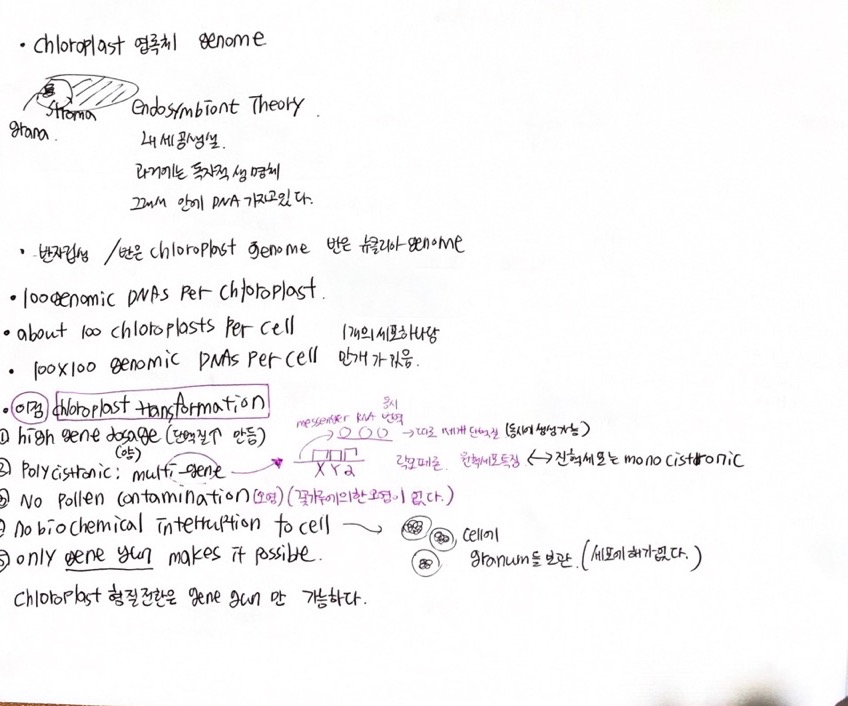 • chloroplast 엽록체 genome
stroma
grana.
Endosymbiont Theory.
내세공생설.
과거에는 독자적 생명체
그래서 안에 DNA 가지고있다.
• 반자립성 / 반은 chloroplast genome 반은 뉴클리아 genome
• 100 genomic DNAs per chloroplast.
• about 100 chloroplasts per cell 1개의 세포하나당
• 100x100 genomic DNAs per cell 만개가 있음.
• 이점 chloroplast transformation
① high gene dosage (단백질↑ 만듦)
(양)
messenger RNA 번역
동시
→ 따로 세개 단백질 (동시에 생성가능)
② Polycistronic: multi-gene → X Y Z 락오페론. 원핵세포특징 ↔ 진핵세포는 mono cistronic
③ No pollen contamination (오염) (꽃가루에의한 오염이 없다.)
④ No biochemical interruption to cell → cell에
⑤ only gene gun makes it possible. granum들 보관. (세포에 해가없다.)
chloroplast 형질전환은 gene gun 만 가능하다.